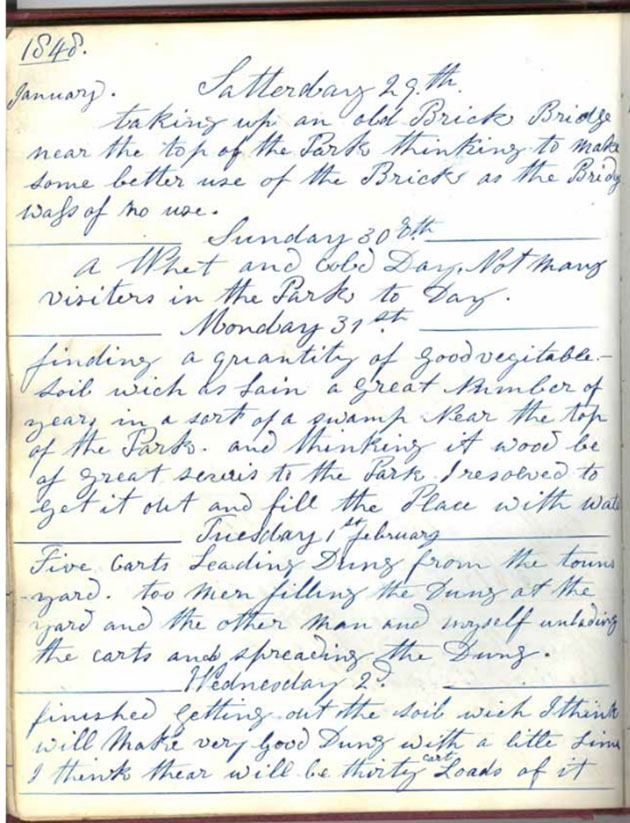 1848.
January. Satterday 29.th
taking up an old Brick Bridge
near the top of the Park thinking to make
some better use of the Bricks as the Bridg
wass of no use.
Sunday 30th
a Whet and cold Day. Not many
visiters in the Park to Day.
Monday 31st
finding a quantity of good vegitable
soil wich as Lain a great Number of
years in a sort of a swamp Near the top
of the Park. and thinking it wood be
of great servis to the Park I resolved to
get it out and fill the Place with wate
Tuesday 1st february
Five Carts Leading Dung from the town
yard. too men filling the Dung at the
yard and the other man and myself unlading
the carts and spreading the Dung.
Wednesday 2d
finished getting out the soil wich I think
will Make very Good Dung with a little Lime
I think thear will be thirty cart Loads of it